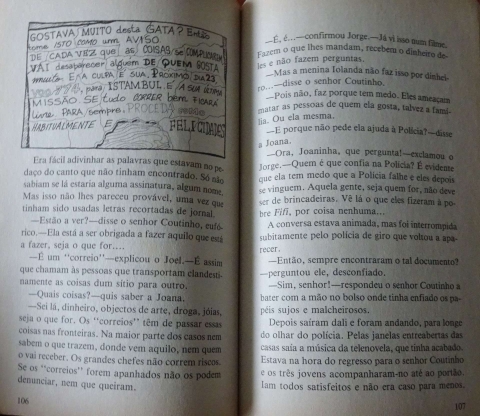 GOSTAVA MUITO desta GATA? Então
tome ISTO COMO um AVISO.
DE CADA VEZ que as COISAS se COMPLICAREM
VAI desaparecer alguem DE QUEM GOSTA
muito E A culpa É SUA. PRÓXIMO DIA 23
para ISTAMBUL E A SUA ÚLTIMA
MISSÃO. SE tudo CORRER bem FICARÁ
livre PARA sempre. PROCEDA
HABITUALMENTE E
FELICIDADES
Era fácil adivinhar as palavras que estavam no pe-
daço do canto que não tinham encontrado. Só não
sabiam se lá estaria alguma assinatura, algum nome.
Mas isso não lhes pareceu provável, uma vez que
tinham sido usadas letras recortadas de jornal.
—Estão a ver?—disse o senhor Coutinho, eufó-
rico.—Ela está a ser obrigada a fazer aquilo que está
a fazer, seja o que for....
—É um "correio"—explicou o Joel.—É assim
que chamam às pessoas que transportam clandesti-
namente as coisas dum sítio para outro.
—Quais coisas?—quis saber a Joana.
—Sei lá, dinheiro, objectos de arte, droga, jóias,
seja o que for. Os "correios" têm de passar essas
coisas nas fronteiras. Na maior parte dos casos nem
sabem o que trazem, donde vem aquilo, nem quem
o vai receber. Os grandes chefes não correm riscos.
Se os "correios" forem apanhados não os podem
denunciar, nem que queiram.
106
—É, é...—confirmou Jorge.—Já vi isso num filme.
Fazem o que lhes mandam, recebem o dinheiro de-
les e não fazem perguntas.
—Mas a menina Iolanda não faz isso por dinhei-
ro...—disse o senhor Coutinho.
—Pois não, faz porque tem medo. Eles ameaçam
matar as pessoas de quem ela gosta, talvez a famí-
lia. Ou ela mesma.
—E porque não pede ela ajuda à Polícia?—disse
a Joana.
—Ora, Joaninha, que pergunta!—exclamou o
Jorge.—Quem é que confia na Polícia? É evidente
que ela tem medo que a Polícia falhe e eles depois
se vinguem. Aquela gente, seja quem for, não deve
ser de brincadeiras. Vê lá o que eles fizeram à po-
bre Fifi, por coisa nenhuma...
A conversa estava animada, mas foi interrompida
subitamente pelo polícia de giro que voltou a apa-
recer.
—Então, sempre encontraram o tal documento?
—perguntou ele, desconfiado.
—Sim, senhor!—respondeu o senhor Coutinho a
bater com a mão no bolso onde tinha enfiado os pa-
péis sujos e malcheirosos.
Depois saíram dali e foram andando, para longe
do olhar do polícia. Pelas janelas entreabertas das
casas saía a música da telenovela, que tinha acabado.
Estava na hora do regresso para o senhor Coutinho
e os três jovens acompanharam-no até ao portão.
Iam todos satisfeitos e não era caso para menos.
107